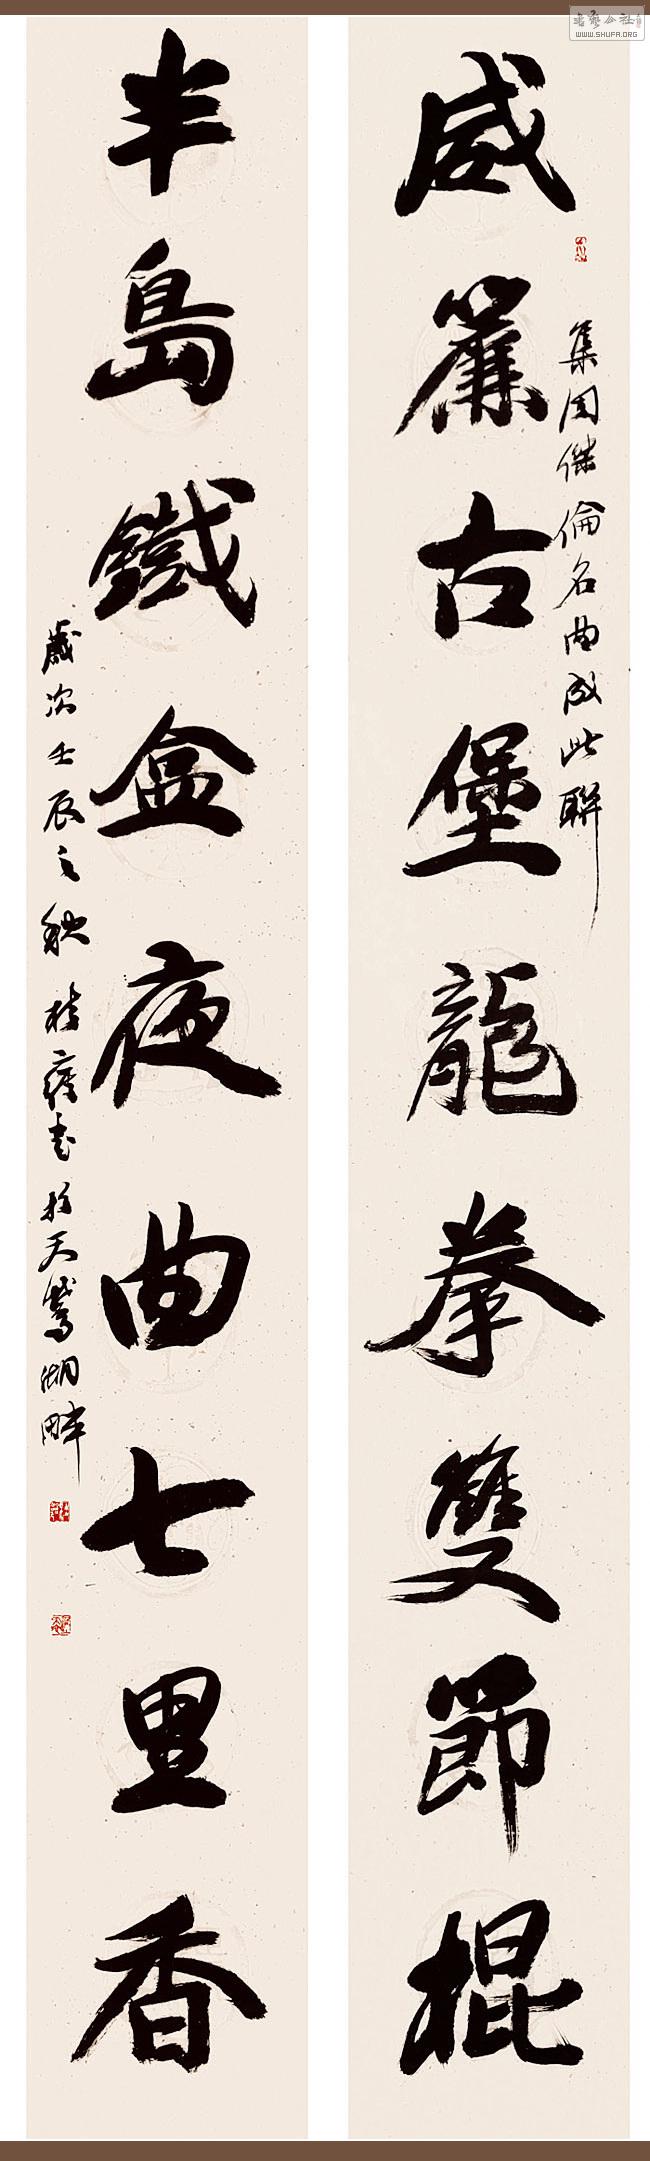 威簾古堡龍拳雙節棍
集周傑倫名曲成此聯
半島鐵盒夜曲七里香
歲次壬辰之秋
書於天鵞湖畔
書藝公社
WWW.SHUFA.ORG